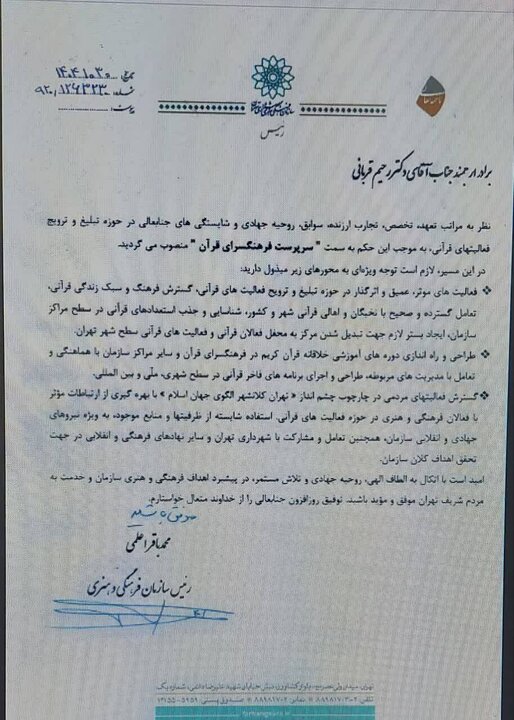 تاریخ: ۱۴۰۴،۱۰،۳۰
شماره: ۹۲۰/۱۲۶۳۲۳
پیوست:
رئیس
برادر ارجمند جناب آقای دکتر رحیم قربانی
نظر به مراتب تعهد، تخصص، تجارب ارزنده، سوابق، روحیه جهادی و شایستگی های جنابعالی در حوزه تبلیغ و ترویج
فعالیتهای قرآنی، به موجب این حکم به سمت " سرپرست فرهنگسرای قرآن " منصوب می گردید.
در این مسیر، لازم است توجه ویژه‌ای به محورهای زیر مبذول دارید:
❖ فعالیت های موثر، عمیق و اثرگذار در حوزه تبلیغ و ترویج فعالیت های قرآنی، گسترش فرهنگ و سبک زندگی قرآنی،
تعامل گسترده و صحیح با نخبگان و اهالی قرآنی شهر و کشور، شناسایی و جذب استعدادهای قرآنی در سطح مراکز
سازمان، ایجاد بستر لازم جهت تبدیل شدن مرکز به محفل فعالان قرآنی و فعالیت های قرآنی سطح شهر تهران.
❖ طراحی و راه اندازی دوره های آموزشی خلاقانه قرآن کریم در فرهنگسرای قرآن و سایر مراکز سازمان با هماهنگی و
تعامل با مدیریت های مربوطه، طراحی و اجرای برنامه های فاخر قرآنی در سطح شهری، ملّی و بین المللی.
❖ گسترش فعالیتهای مردمی در چارچوب چشم انداز « تهران کلانشهر الگوی جهان اسلام » با بهره گیری از ارتباطات مؤثر
با فعالان فرهنگی و هنری در حوزه فعالیت های قرآنی. استفاده شایسته از ظرفیتها و منابع موجود، به ویژه نیروهای
جهادی و انقلابی سازمان، همچنین تعامل و مشارکت با شهرداری تهران و سایر نهادهای فرهنگی و انقلابی در جهت
تحقق اهداف کلان سازمان.
امید است با اتکال به الطاف الهی، روحیه جهادی و تلاش مستمر، در پیشبرد اهداف فرهنگی و هنری سازمان و خدمت به
مردم شریف تهران موفق و مؤید باشید. توفیق روزافزون جنابعالی را از خداوند متعال خواستارم.
موفق باشید
محمدباقر اعلمی
رئیس سازمان فرهنگی و هنری
تهران، میدان ولی عصر(عج)، بلوار کشاورز، نبش خیابان شهید علیرضا دائمی، شماره یک
تلفن: ۳-۸۸۹۸۱۷۰۲ نمابر: ۸۸۹۸۱۷۰۲ صندوق پستی: ۵۹۵۹-۱۴۱۵۵